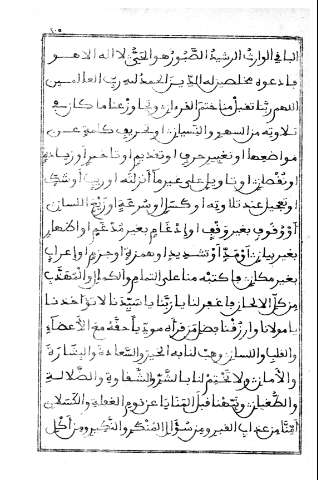 الباقي الوارث الرشيد الصبور هو الحي لا اله الا هو
فادعوه مخلصين له الدين الحمد لله رب العالمين
اللهم ربنا تقبل منا ختم القرءان وتجاوز عنا ما كان في
تلاوته من السهو والنسيان او تحريف كلمة عن
مواضعها او تغيير حرف او تقديم او تاخير او زيادة
او نقصان او تاويل على غير ما أنزلته او ريب أو شك
او تعجيل عند تلاوته او كسل او سرعة او زيغ اللسان
أو وقوف بغير وقف او إدغام بغير مدغم او اظهار
بغير بيان أو مد أو تشديد او همزة او جزم او إعراب
بغير مكان فاكتبه منا على التمام والكمال والمهذب
من كل الالحان فاغفر لنا يا ربنا يا سيدنا لا تؤاخذنا
يا مولانا وارزقنا فضل من قرأه موديا حقه مع الأعضاء
والقلب واللسان وهب لنا به الخير والسعادة والبشارة
والأمان ولا تختم لنا بالشر والشقاوة والضلالة
والطغيان ونبهنا قبل المنايا عن نوم الغفلة والكسلان
أمنا من عذاب القبر ومن سؤال المنكر والنكير ومن أكل